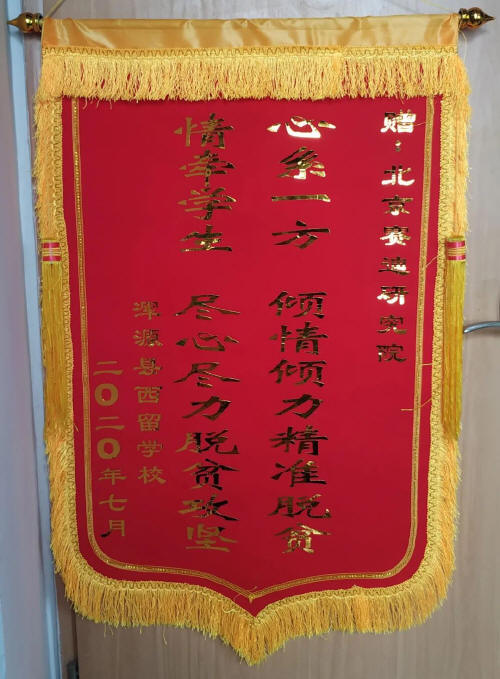 赠：北京赛迪研究院
心系一方 倾情倾力精准脱贫
情牵学生 尽心尽力脱贫攻坚
浑源县西留学校
二〇二〇年七月